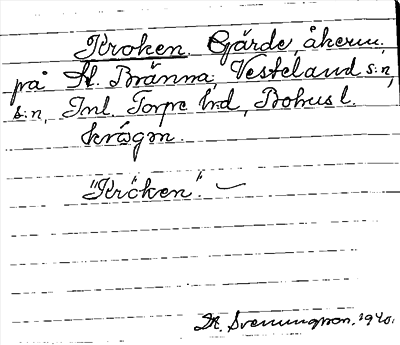 Kroken. Gärde, åkerm.
på St. Bränna, Vesteland s:n,
s:n, Inl. Torpe hd, Bohusl.
krógən.
"Kröken".
M. Svenungsson. 1940.